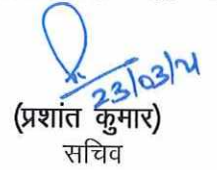 23/03/21
(प्रशांत कुमार)
सचिव